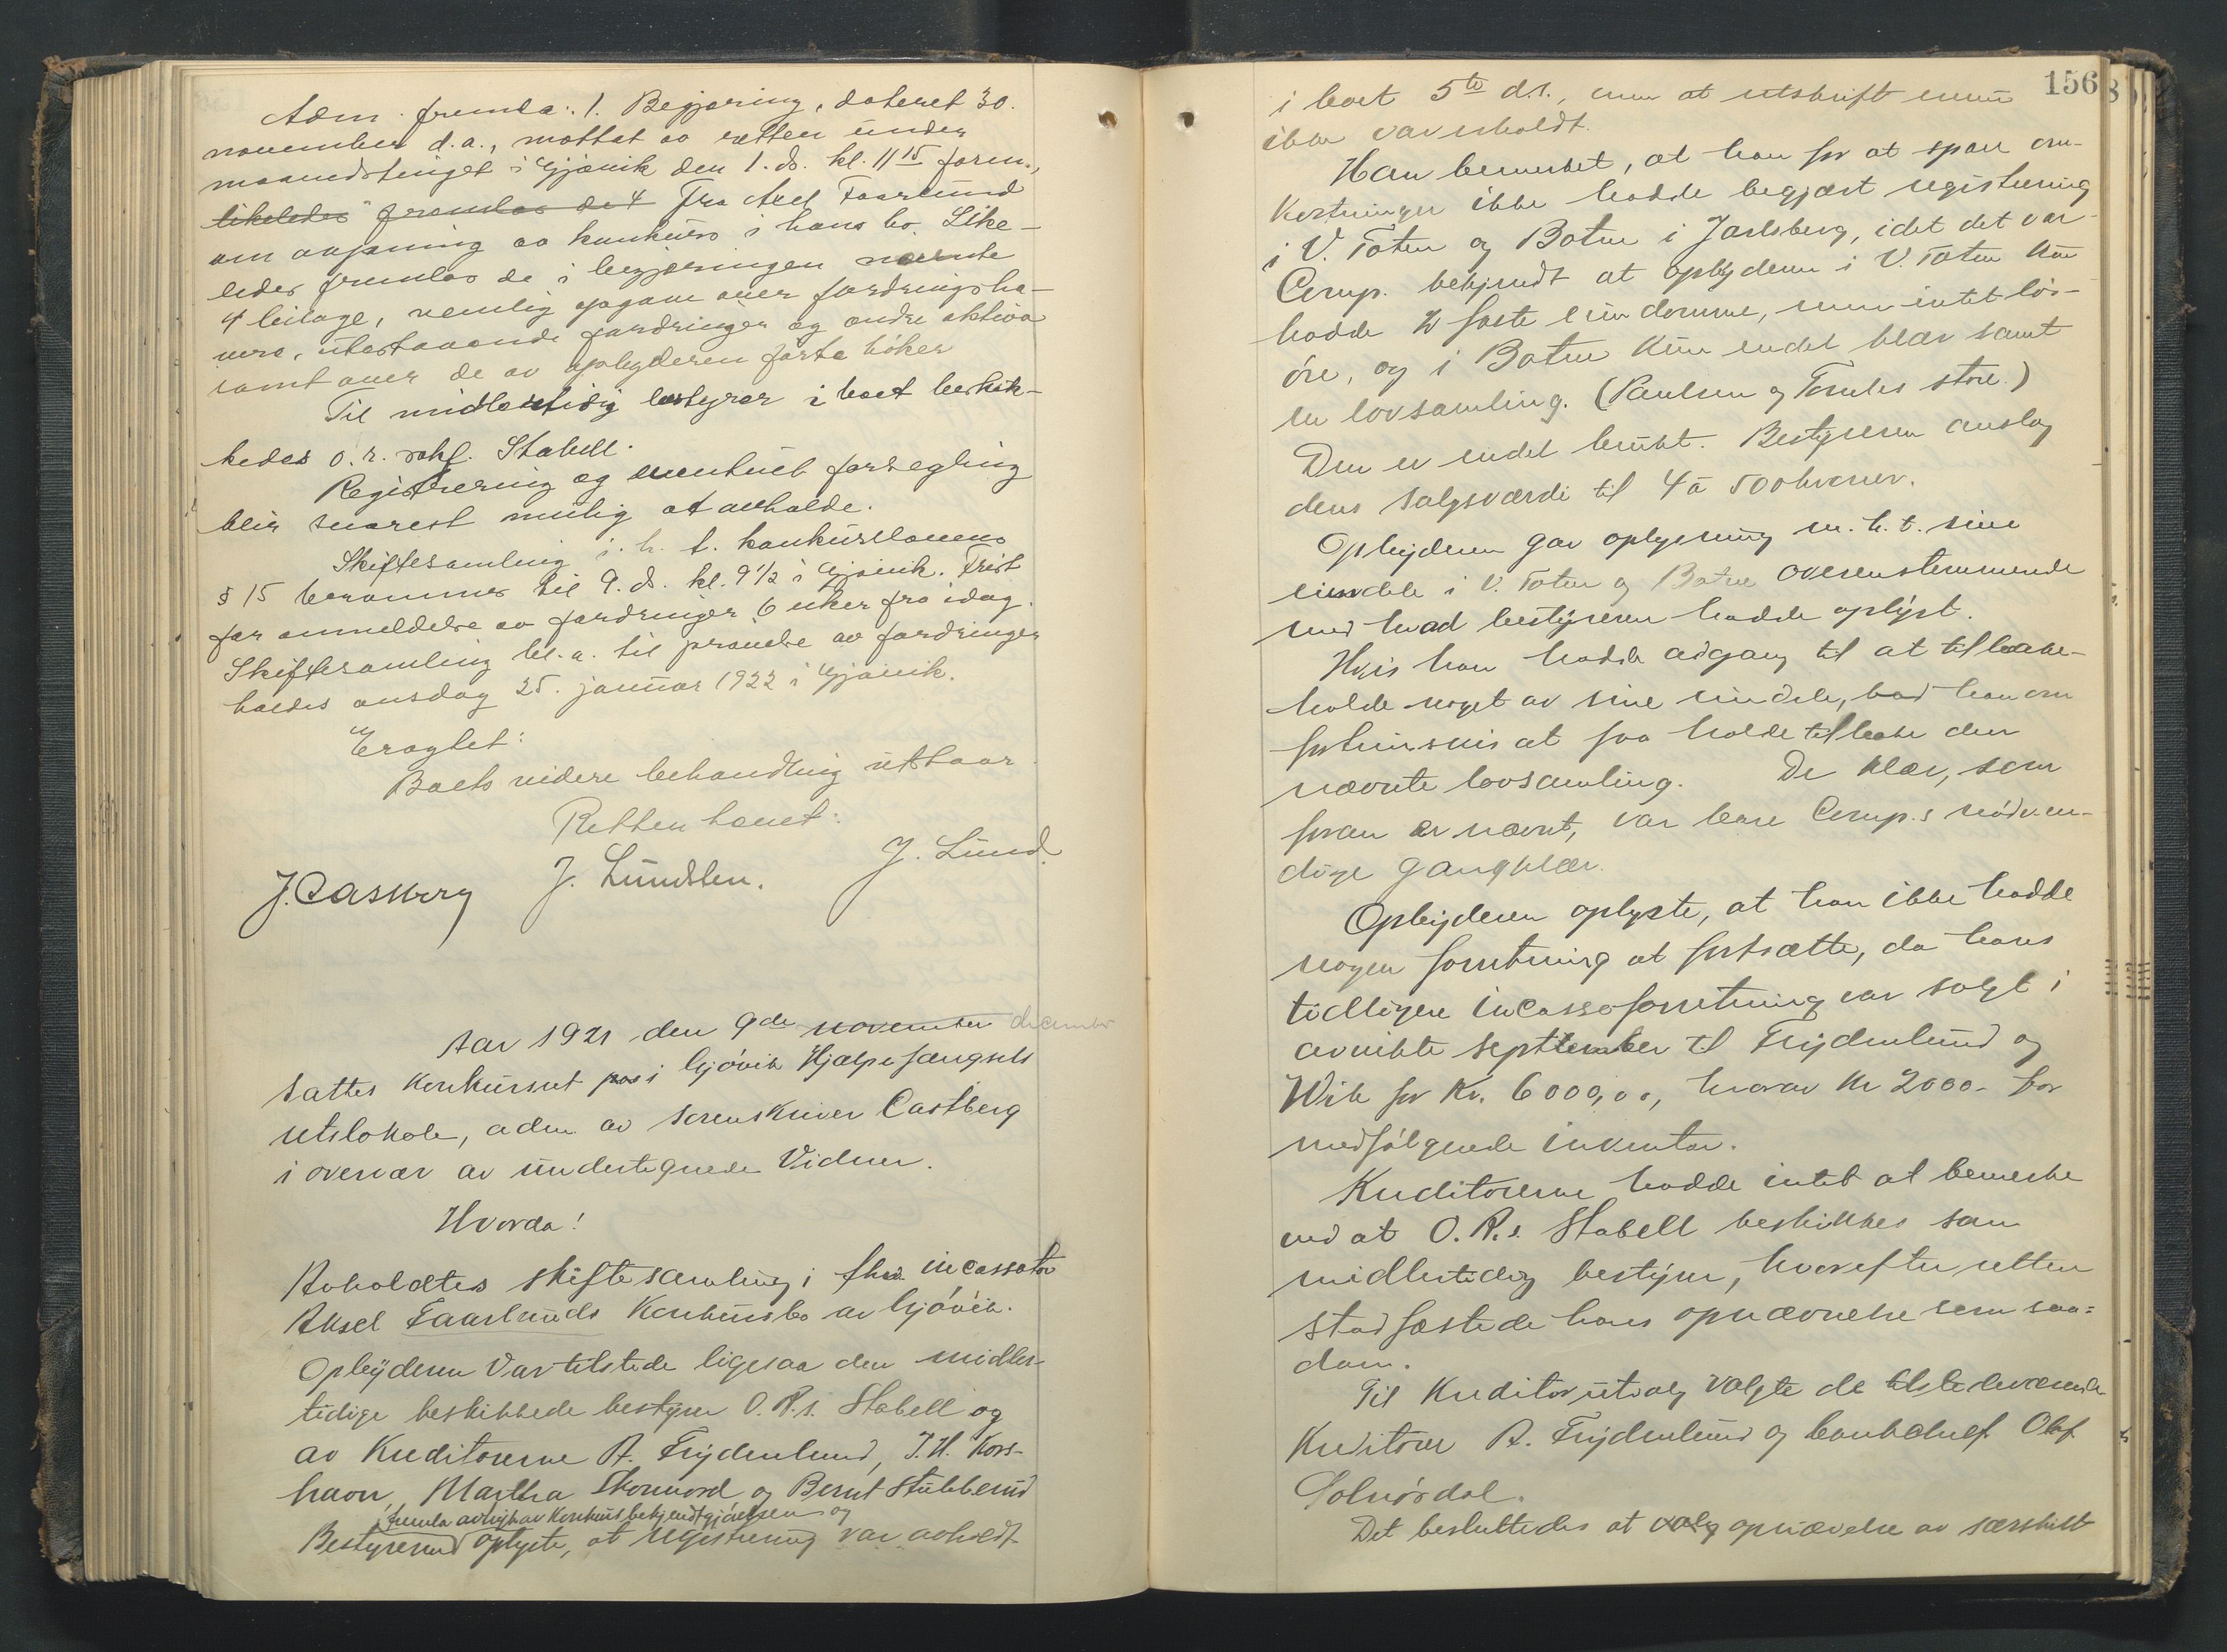 Adm. fremla: 1. Begjæring, dateret 30.
november d.a., mottat av retten under
maanedstinget i Gjøvik den 1. ds. kl. 11 15 form.,
likeledes fremlas de 4 fra Axel Faarlund
om aapning av konkurs i hans bo. Like-
ledes fremlas de i begjæringen nævnte
4 bilage, nemlig opgave over fordringsha-
vere, utestaaende fordringer og andre aktiva
samt over de av opbyderen førte bøker
Til midlertidig bestyrer i boet beskik-
kedes o.r. sakf. Stabell.
Registrering og eventuel forsegling
blir snarest mulig at avholde.
Skiftesamling i. h. t. konkurslovens
§ 15 berammes til 9. ds. kl. 9 1/2 i Gjøvik. Frist
for anmeldelse av fordringer 6 uker fra idag.
Skiftesamling bl.a. til prøvelse av fordringer
holdes onsdag 25. januar 1922 i Gjøvik.
Eragtet:
Boets videre behandling utstaar
Retten hævet:
J. Castberg J. Lundsten. J. Lund.
Aar 1921 den 9de november december
sattes Konkursret paa i Gjøvik Hjælpefængsels
retslokale, adm av sorenskriver Castberg
i overvær av undertegnede Vidner.
Hvorda!
Avholdtes skiftesamling i fhv. incassator
Aksel Faarlunds Konkursbo av Gjøvik.
Opbyderen var tilstede ligesaa den midler-
tidige beskikkede bestyrer O.R.s. Stabell og
av Kreditorerne A. Frydenlund, J.H. Kors-
havn, Martha Skonnord og Bernt Stubberud
fremla avtryk av Konkursbekjendtgjørelsen og
Bestyreren oplyste, at registrering var avholdt
156
i boet 5te d.s., men at utskrift ennu
ikke var erholdt.
Han bemerket, at han for at spare om-
kostninger ikke hadde begjært registrering
i V. Toten og Botne i Jarlsberg, idet det var
Comp. bekjendt at opbyderen i V. Toten kun
hadde 2 faste eiendomme, men intet løs-
øre, og i Botne kun endel klær samt
en lovsamling. (Paulsen og Tombes store.)
Den er endel brukt. Bestyreren anslog
dens salgsværdi til 4 à 500 kroner.
Opbyderen gav oplysning m.h.t. sine
eiendele i V. Toten og Botne overensstemmende
med hvad bestyreren hadde oplyst.
Hvis han hadde adgang til at tilbake-
holde noget av sine eiendele, bad han om
fortrinsvis at faa holde tilbake den
nævnte lovsamling. De klær, som
foran er nævnt, var bare Comp.s nødven-
dige gangklær.
Opbyderen oplyste, at han ikke hadde
nogen forretning at fortsætte, da hans
tidligere incassoforretning var solgt i
avvikte september til Frydenlund og
Wik for Kr. 6000,00, hvorav kr 2000.- for
medfølgende inventar.
Kreditorerne hadde intet at bemerke
ved at O.R.s. Stabell beskikkes som
midlertidig bestyrer, hvorefter retten
stadfæstede hans opnævnelse som saa-
dan.
Til Kreditorutvalg valgte de tilstedeværende
Kreditorer A. Frydenlund og bankchef Olaf
Solnørdal.
Det besluttedes at valg opnævnelse av særskilt